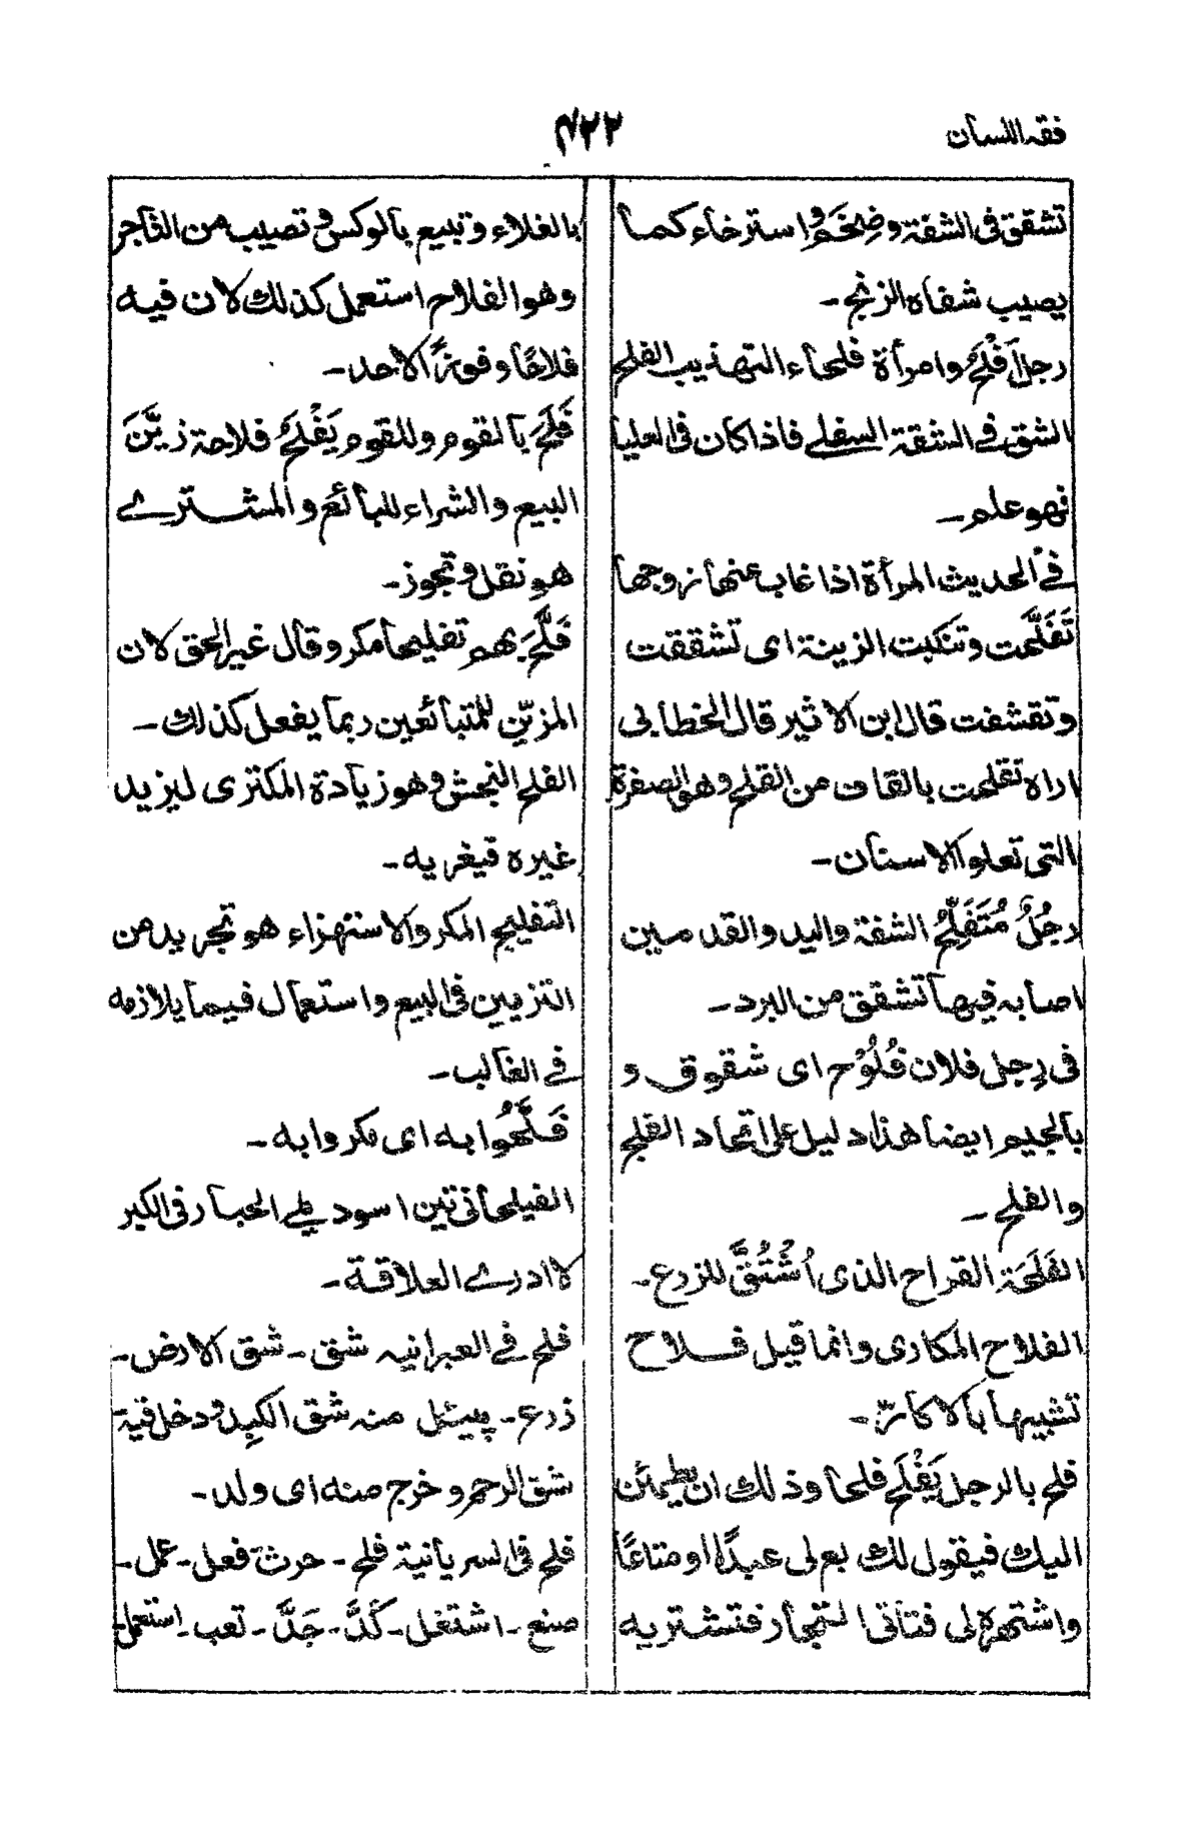 فقه اللسان
٤٢٢
تشقق فى الشفة وضِخَم واسترخاء كما
يصيب شفاه الزنج ـ
رجل أَفْلَحُ وامرأة فلحاء التهذيب الفلح
الشق فے الشفة السفلے فاذا كان فى العليا
فهو علم ـ
فے الحديث المرأة اذا غاب عنها زوجها
تَفَلَّحت وتنكبت الزينة اى تشققت
وتقشفت قال ابن الاثير قال الخطابى
اراه تقلحت بالقاف من القلح وهى الصفرة
التى تعلو الاسنان ـ
رجُلٌ مُتَفَلِّحُ الشفة واليد والقدمين
اصابه فيها تشقق من البرد ـ
فى رِجل فلان فُلُوْح اى شقوق و
بالجيم ايضا هذا دليل على اتحاد الفلج
والفلح ـ
الفَلَحَة القراح الذى اُشْتُقَّ للزرع ـ
الفلاح المكارى وانما قيل فلاح
تشبيها بالاكارّ ـ
فلح بالرجل يَفْلَح فلحا وذلك ان يطمئن
اليك فيقول لك بع لى عبدًا او متاعًا
واشتره لى فتاتى التجار فتشتريه
بالغلاء وتبيع بالوكس وتصيب من التاجر
وهو الفلاح استعمل كذلك لان فيه
فلاحًا وفوزًا لاحد ـ
فَلَحَ بالقوم وللقوم يَفْلَحُ فلاحة زيَّنَ
البيع والشراء للبائع والمشترے
هو نقل وتجوز ـ
فَلَّحَ بهم تفليحا مكر وقال غير الحق لان
المزيّن للمتبائعين ربما يفعل كذلك ـ
الفلح النجش وهو زيادة المكترى ليزيد
غيره فيغريه ـ
التفليح المكر والاستهزاء هو تجريد من
التزيين فى البيع واستعمال فيما يلازمه
فے الغالب ـ
فَلَّحُوا به اى مكروا به ـ
الفيلحانى تين اسود يلے الحبار فى الكبر
لا ادرے العلاقة ـ
فلح فے العبرانيه شق ـ شق الارض ـ
زرع ـ پيئل منه شق الكبِد ودخل فيه
شق الرحم وخرج منه اى ولد ـ
فلح فى السريانية فلح ـ حرث فعل ـ عمل ـ
صنع ـ اشتغل ـ كَدَّ ـ جَدَّ ـ تعب ـ استعمل ـ